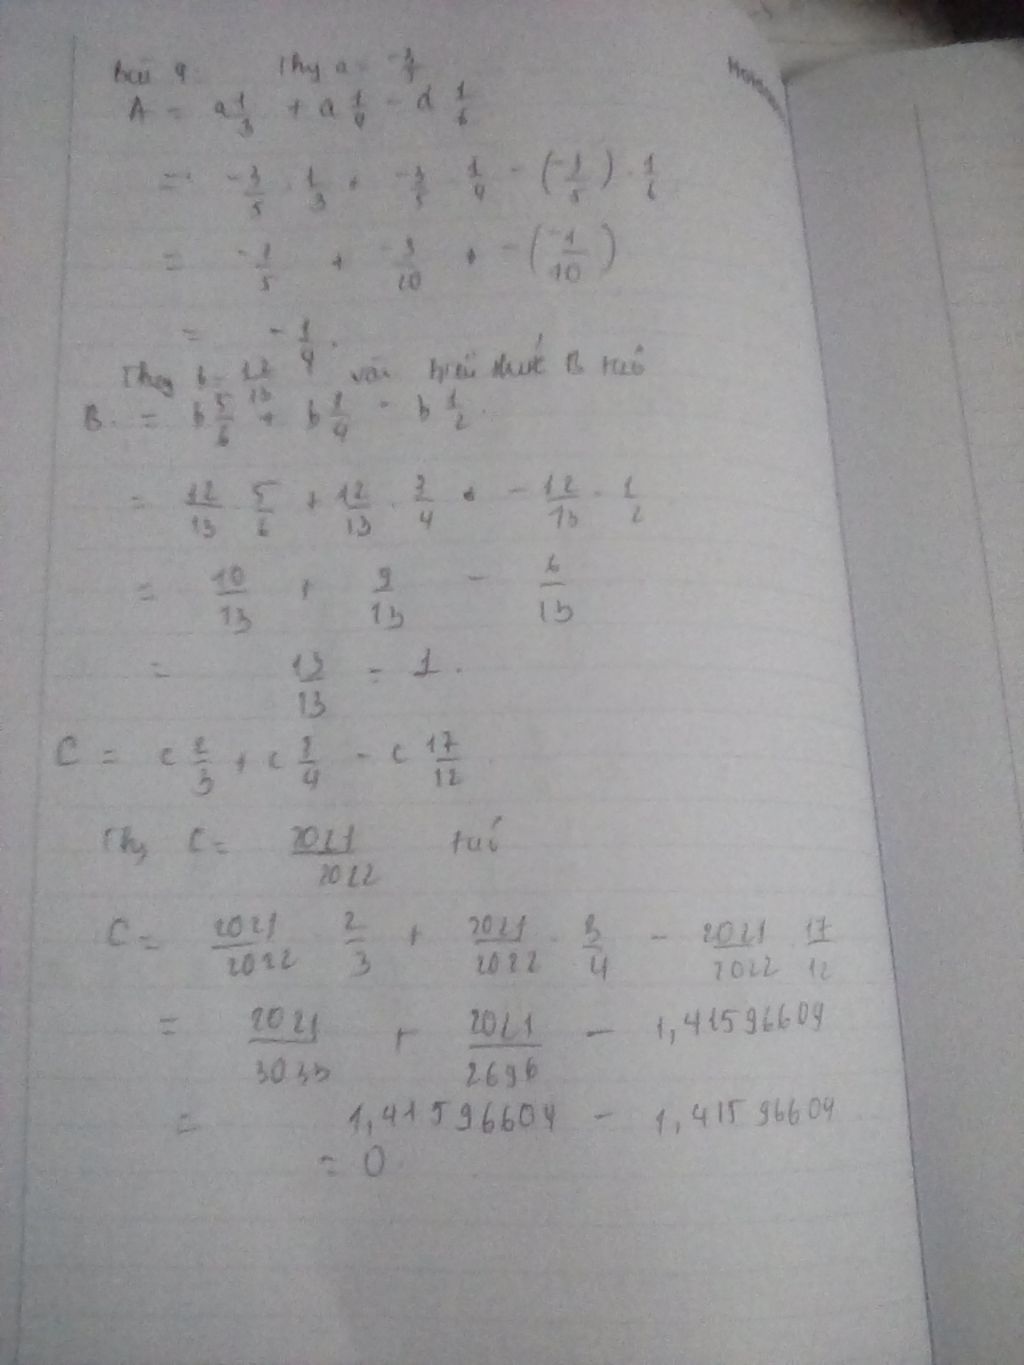 Bài 9. Thay a = -3/5
A = a 1/3 + a 1/4 - a 1/6
= -3/5 . 1/3 + -3/5 1/4 - (-3/5) . 1/6
= -1/5 + -3/20 + - (-1/10)
= - 1/4.
Thay b = 12/13 vào biểu thức B ta có
B. = b 5/6 + b 3/4 - b 1/2.
= 12/13 5/6 + 12/13 . 3/4 - 12/13 . 1/2
= 10/13 + 9/13 - 6/13
= 13/13 = 1.
C = c 2/3 + c 3/4 - c 17/12.
Thay C = 2021/2022 ta có
C = 2021/2022 2/3 + 2021/2022 . 3/4 - 2021/2022 17/12
= 2021/3033 + 2021/2696 - 1,41596604
= 1,41596604 - 1,41596604
= 0.